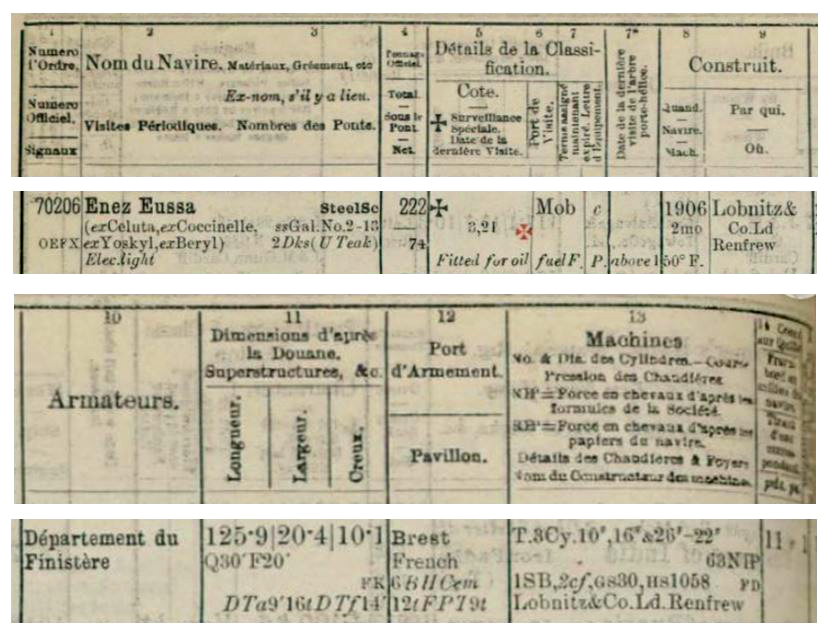 1 2 3 4 5 6 7 7* 8 9
Numero d'Ordre.
Numero Officiel.
Signaux
Nom du Navire. Matériaux, Gréement, etc
Ex-nom, s'il y a lieu.
Visites Périodiques. Nombres des Ponts.
Tonnage Officiel.
Total.
Sous le Pont.
Net.
Détails de la Classi-
fication.
Cote.
✠ Surveillance
Spéciale.
Date de la
dernière Visite.
Port de Visite.
Terme assigné maintenant expiré. Lettre d'Equipement.
Date de la dernière visite de l'arbre porte-hélice.
Construit.
Quand.
Navire.
Mach.
Par qui.
Où.
70206 Enez Eussa SteelSc 222 ✠ Mob c 1906 Lobnitz&
(exCeluta,exCoccinelle, ssGal.No.2-13 3,21 ✠ 2mo Co.Ld
OEFX exYoskyl,exBeryl) 2Dks(U Teak) 74 Renfrew
Elec.light Fitted for oil fuel F. P. above 150° F.
10 11 12 13
Armateurs.
Dimensions d'après
la Douane.
Superstructures, &c.
Longueur.
Largeur.
Creux.
Port
d'Armement.
Pavillon.
Machines
No. & Dia. des Cylindres.—Course
Pression des Chaudières
NHP=Force en chevaux d'après les
formules de la Société.
RHP=Force en chevaux d'après les
papiers du navire.
Détails des Chaudieres & Foyers
Nom du Constructeur des machines
Département du 125·9|20·4|10·1 Brest T.3Cy.10",16"&26"-22"
Finistère Q30'F20' French 63NHP
FK 6BHCem 1SB,2cf,GS30,HS1058 FD
DTa9'16tDTf14'12tFP79t Lobnitz&Co.Ld.Renfrew